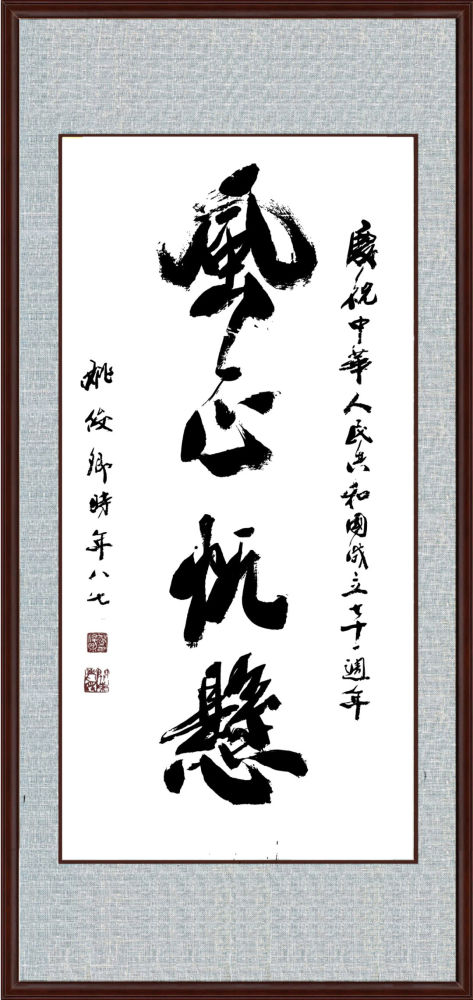 慶祝中華人民共和國成立七十一週年
風正帆懸
姚俊卿時年八七